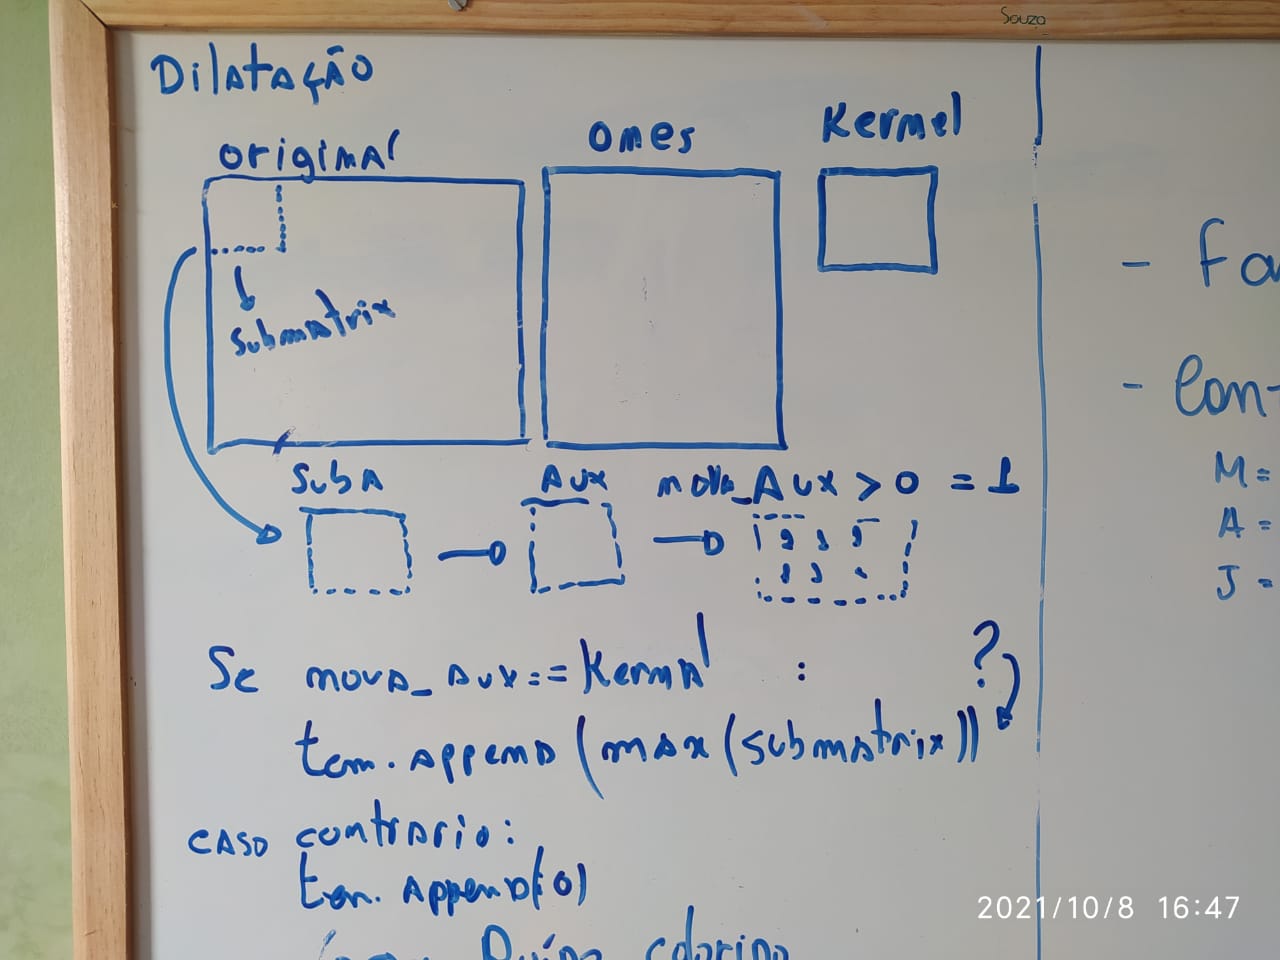 Souza
Dilatação
original
ones
Kernel
submatrix
SubA
Aux
nova_Aux > 0 = 1
Se nova_Aux == Kernel :
?
tem.append(max(submatrix))
caso contrario:
tem.append(0)
- Fo
- Con
M =
A =
J =
2021/10/8 16:47